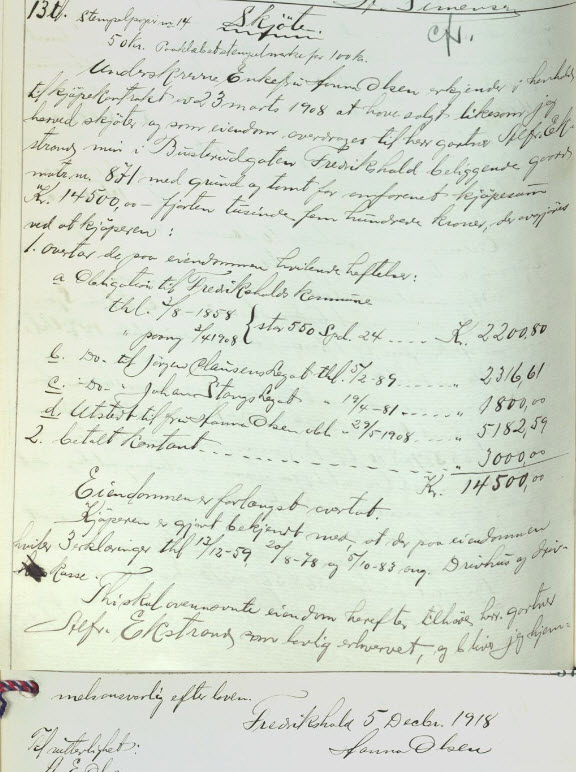 131. Stempelpapir no. 14 Skjøte.
50 kr. Punktdebetstempelmerke for 100 kr.
Underskrevne Enkefru Hanna Olsen erkjender i henhold
til kjøpekontrakt av 23 marts 1908 at have solgt likesom jeg
herved skjøter og som eiendom overdrager til herr gartner Alfr. Ek-
strand min i Busterudgaten Fredrikshald beliggende gaard
matr. nr. 871 med grund og tomt for omforenet kjøpesum
Kr. 14500,00 – fjorten tusinde fem hundrede kroner, der avgjøres
ved at kjøperen:
1. overtar de paa eiendommen hvilende heftelser:
a Obligation til Fredrikshalds kommune
thl. 3/8-1858
" 3/4 1908 } stor 550 Spd. 24 ..... Kr. 2200,80
b. Do. til Jørgen Clausens legat thl. 5/2-89 ...... " 2316,61
c. Do. " Johan Stangs legat " 19/4-81 ...... " 1800,00
d. Utstedt til fru Hanna Olsen obl. " 29/5 1908 ..... " 5182,59
2. betalt kontant ............ " 3000,00
Kr. 14500,00
Eiendommen er forlængst overtat.
Kjøperen er gjort bekjendt med, at der paa eiendommen
hviler 3 erklæringer thl 12/12-59 20/8-78 og 5/10-83 ang. Drivhus og driv-
kasse.
Thi skal ovennævnte eiendom herefter tilhøre herr gartner
Alfr. Ekstrand som lovlig erhvervet, og bliver jeg hjem-
melsansvarlig efter loven.
Fredrikshald 5 Decbr. 1918
Hanna Olsen
Til vitterlighet: